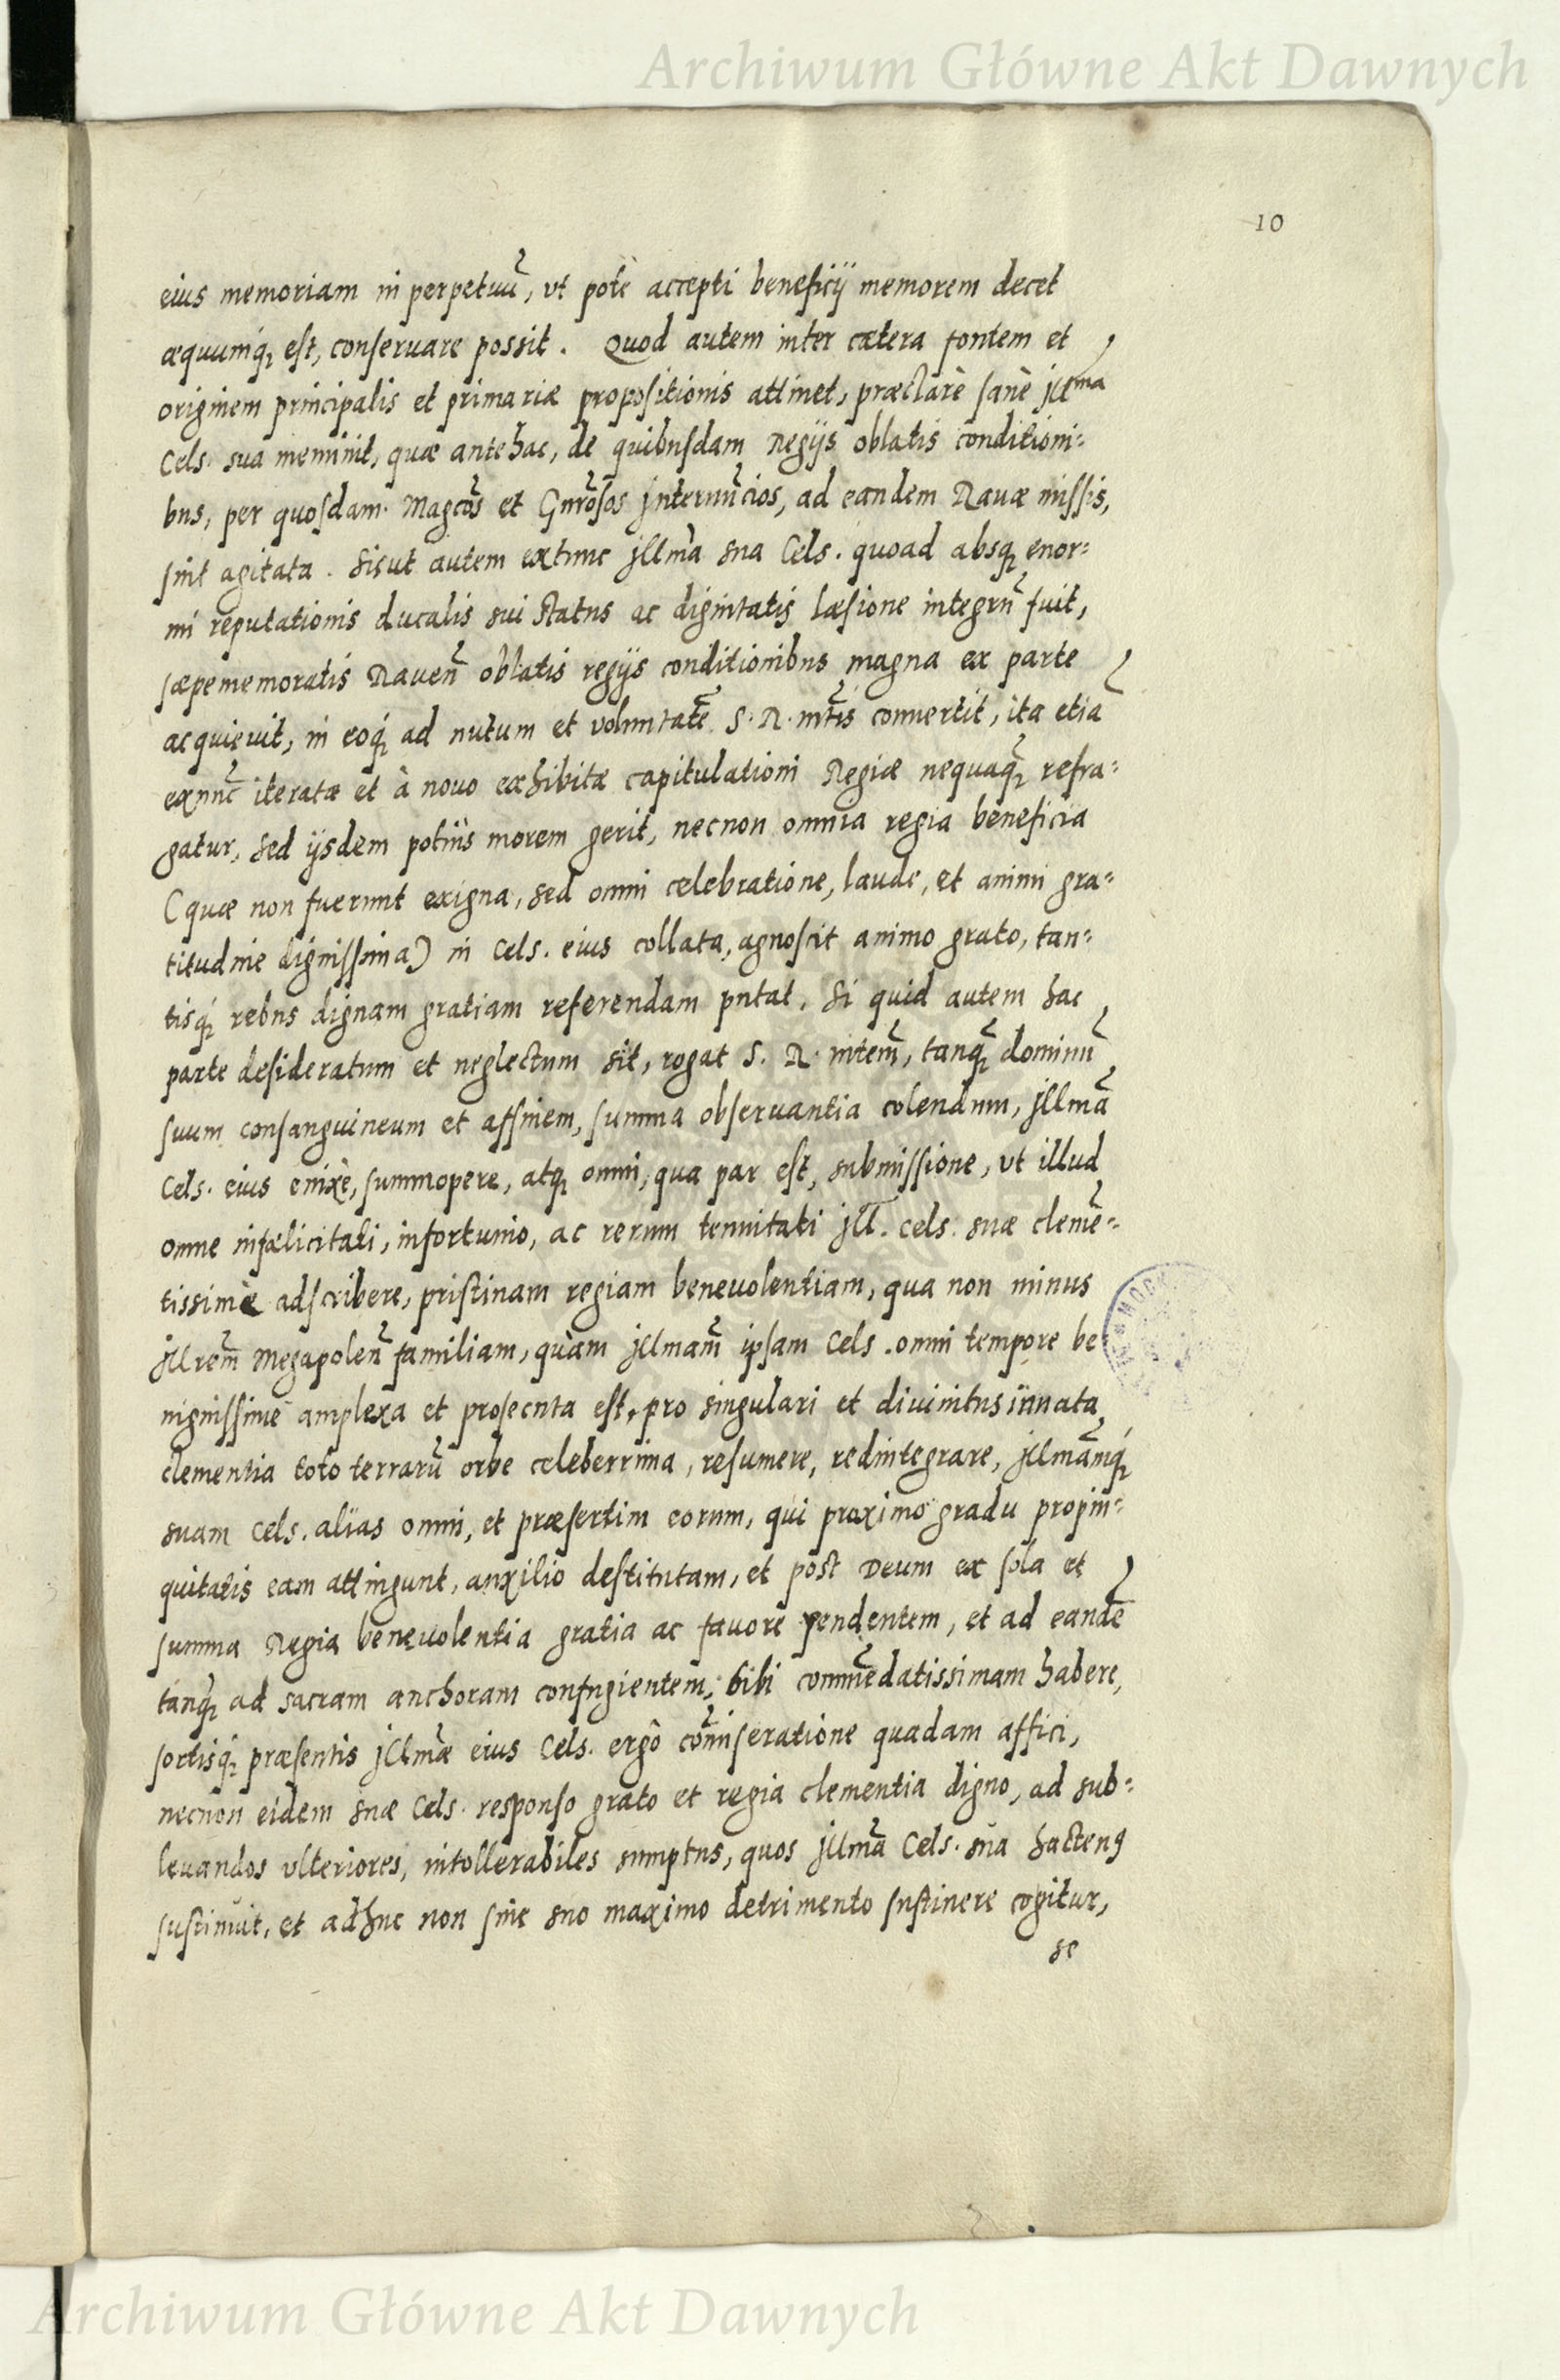 Archiwum Główne Akt Dawnych
10
eius memoriam in perpetuũ, vt potè accepti beneficij memorem decet
æquumq́ꝫ est, conseruare possit. Quod autem inter cætera fontem et
originem principalis et primariæ propositionis attinet, præclarè sanè Jllma
Cels. sua meminit, quæ antehac, de quibusdam Regijs oblatis conditioni=
bus, per quosdam Magcõs et Gnrõsos Jnternũcios, ad eandem Rauæ missis,
sint agitata. Sicut autem extunc Jllma sua Cels. quoad absqꝫ enor=
mi reputationis ducalis sui status ac dignitatis læsione integrũ fuit,
sæpememoratis Raueñ oblatis regijs conditionibus magna ex parte
acquieuit, in eoq́ꝫ ad nutum et voluntatẽ S. R. mtis conuertit, ita etiã
exnũc iteratæ et à nouo exhibitæ capitulationi Regiæ nequaq̃ꝫ refra=
gatur, sed ijsdem potius morem gerit, necnon omnia regia beneficia
(quæ non fuerunt exigua, sed omni celebratione, laude, et animi gra=
titudine dignissima) in Cels. eius collata, agnoscit animo grato, tan=
tisq́ꝫ rebus dignam gratiam referendam putat. Si quid autem hac
parte desideratum et neglectum sit, rogat S. R. mtem̃, tanq̃ꝫ dominũ
suum consanguineum et affinem, summa obseruantia colendum, Jllmã
Cels. eius enixè, summopere, atqꝫ omni, qua par est, submissione, vt illud
omne infælicitati, infortunio, ac rerum tenuitati Jll. Cels. suæ clemẽ=
tissimè adscribere, pristinam regiam beneuolentiam, qua non minus
Jllrem̃ Megapoleñ familiam, quàm Jllmam̃ ipsam Cels. omni tempore be
nignissimè amplexa et prosecuta est, pro singulari et diuinitus innata
clementia toto terrarũ orbe celeberrima, resumere, redintegrare, Jllmãmq́ꝫ
suam Cels. aliàs omni, et præsertim eorum, qui proximo gradu propin=
quitatis eam attingunt, auxilio destitutam, et post Deum ex sola et
summa Regia beneuolentia gratia ac fauore pendentem, et ad eandẽ
tanq́ꝫ ad sacram anchoram confugientem, sibi commẽdatissimam habere,
sortisq́ꝫ præsentis Jllmæ eius Cels. ergò cõmiseratione quadam affici,
necnon eidem suæ Cels. responso grato et regia clementia digno, ad sub=
leuandos vlteriores, intollerabiles sumptus, quos Jllmã Cels. sua hactenꝰ
sustinuit, et adhuc non sine suo maximo detrimento sustinere cogitur,
se
Archiwum Główne Akt Dawnych